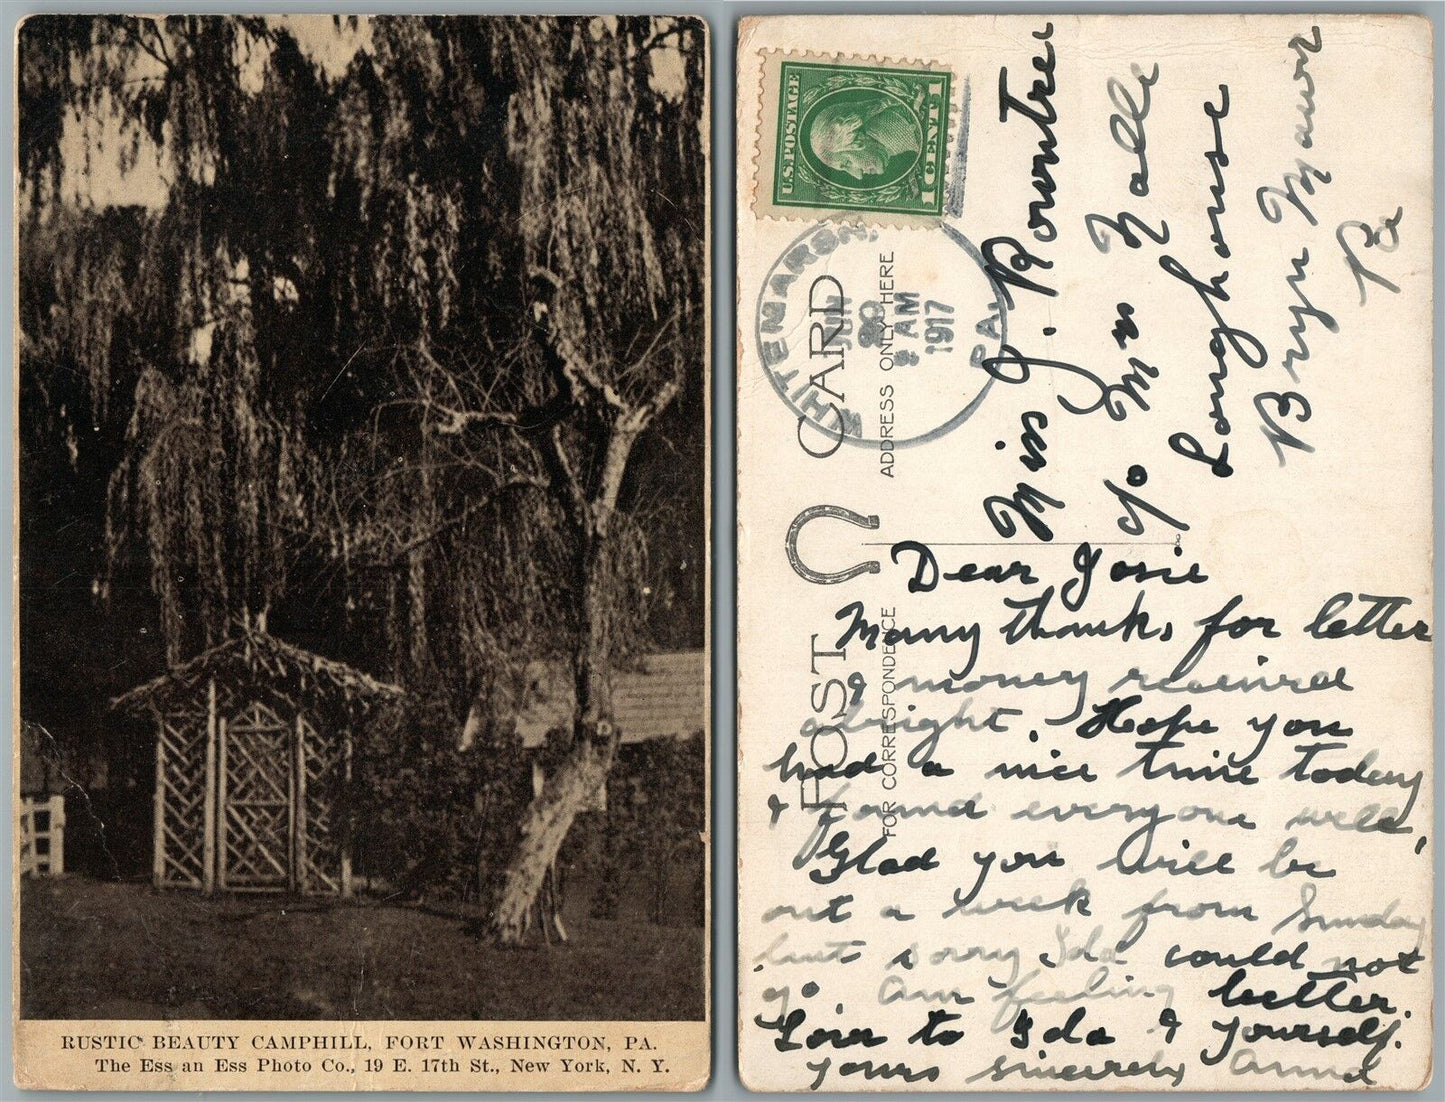 RUSTIC BEAUTY CAMPHILL, FORT WASHINGTON, PA.
The Ess an Ess Photo Co., 19 E. 17th St., New York, N. Y.
U.S. POSTAGE
1 CENT 1
WHITEMARSH PA.
JUN
20
AM
1917
POST CARD
FOR CORRESPONDENCE
ADDRESS ONLY HERE
Miss J. Rowntree
c/o Mrs
Longhouse
Bryn Mawr
Pa
Dear Josie
Many thanks for letter
& money received
alright. Hope you
had a nice time today
& found everyone well,
Glad you will be
out a week from Sunday
but sorry Ida could not
go. Am feeling better.
Love to Ida & yourself.
yours sincerely Anna